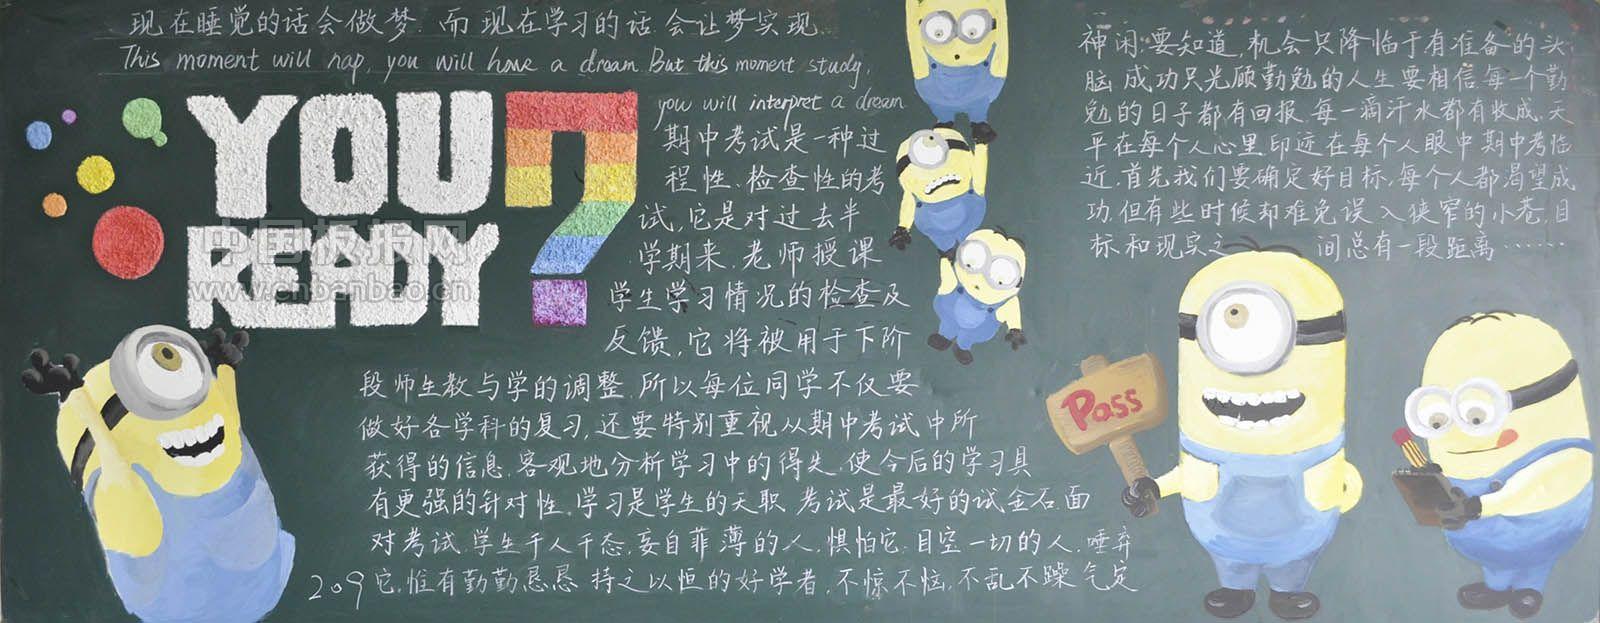 现在睡觉的话会做梦.而现在学习的话.会让梦实现
This moment will nap, you will have a dream. But this moment study,
you will interpret a dream
YOU
READY?
中国板报网
www.cnbanbao.cn
期中考试是一种过
程性、检查性的考
试,它是对过去半
学期来.老师授课
学生学习情况的检查及
反馈,它将被用于下阶
段师生教与学的调整.所以每位同学不仅要
做好各学科的复习,还要特别重视从期中考试中所
获得的信息.客观地分析学习中的得失.使今后的学习具
有更强的针对性.学习是学生的天职.考试是最好的试金石.面
对考试.学生千人千态,妄自菲薄的人.惧怕它.目空一切的人.唾弃
它.惟有勤勤恳恳 持之以恒的好学者,不惊不恼,不乱不躁 气定
209
神闲.要知道,机会只降临于有准备的头
脑.成功只光顾勤勉的人生要相信每一个勤
勉的日子都有回报.每一滴汗水都有收成.天
平在每个人心里.印迹在每个人眼中期中考临
近.首先我们要确定好目标.每个人都渴望成
功.但有些时候却难免误入狭窄的小巷.目
标和现实之间总有一段距离……
Pass